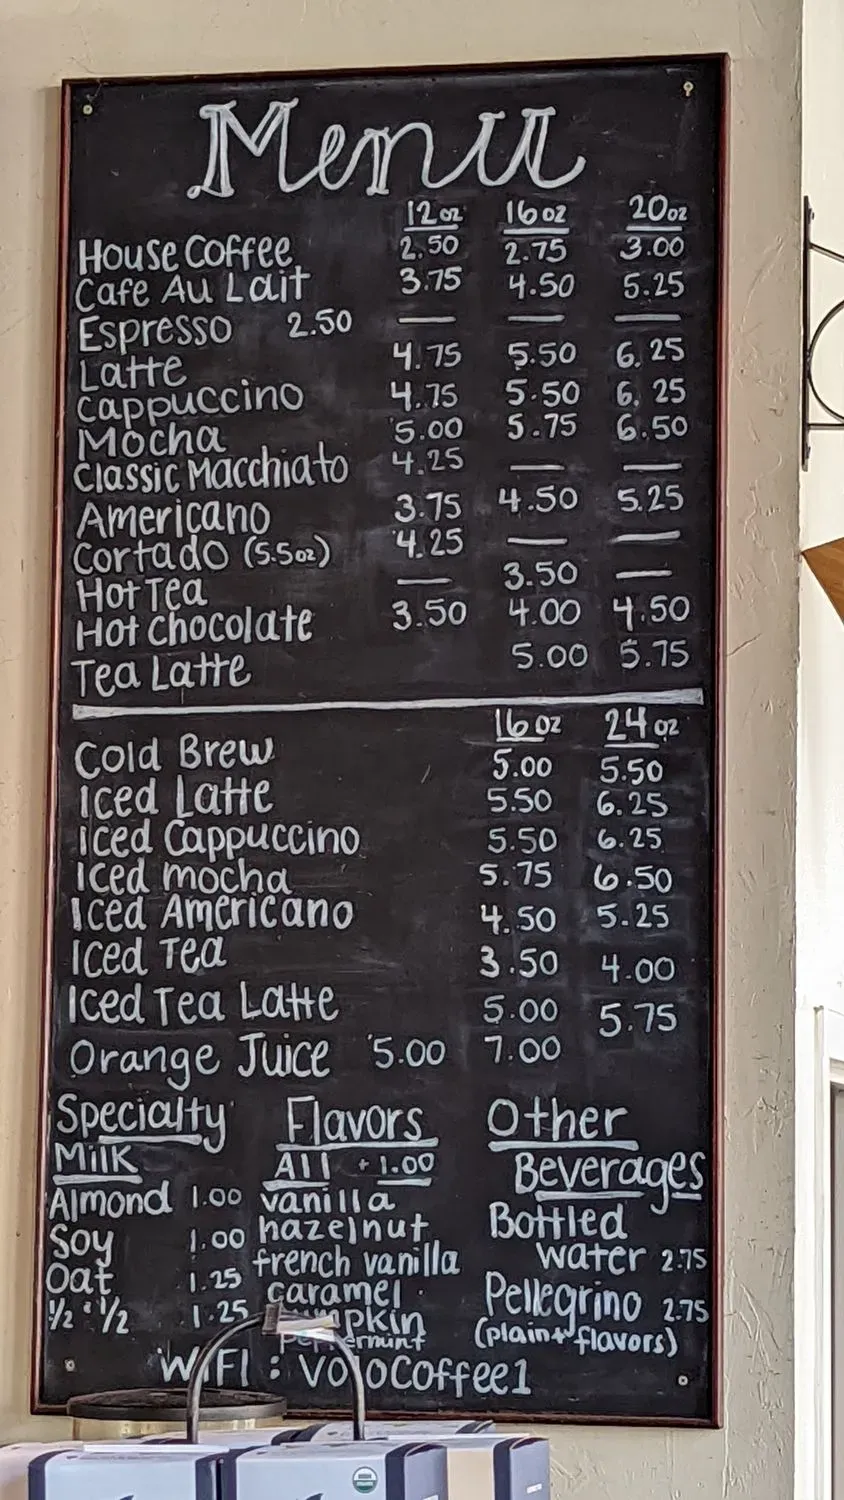 Menu
12oz 16oz 20oz
House Coffee 2.50 2.75 3.00
Cafe Au Lait 3.75 4.50 5.25
Espresso 2.50 — — —
Latte 4.75 5.50 6.25
Cappuccino 4.75 5.50 6.25
Mocha 5.00 5.75 6.50
Classic Macchiato 4.25 — —
Americano 3.75 4.50 5.25
Cortado (5.5oz) 4.25 — —
Hot Tea — 3.50 —
Hot Chocolate 3.50 4.00 4.50
Tea Latte 5.00 5.75
16oz 24oz
Cold Brew 5.00 5.50
Iced Latte 5.50 6.25
Iced Cappuccino 5.50 6.25
Iced mocha 5.75 6.50
Iced Americano 4.50 5.25
Iced Tea 3.50 4.00
Iced Tea Latte 5.00 5.75
Orange Juice 5.00 7.00
Specialty
Milk
Almond 1.00
Soy 1.00
Oat 1.25
1/2 & 1/2 1.25
Flavors
All +1.00
vanilla
hazelnut
french vanilla
caramel
Other
Beverages
Bottled
water 2.75
Pellegrino 2.75
(plain + flavors)
WIFI: VoloCoffee1